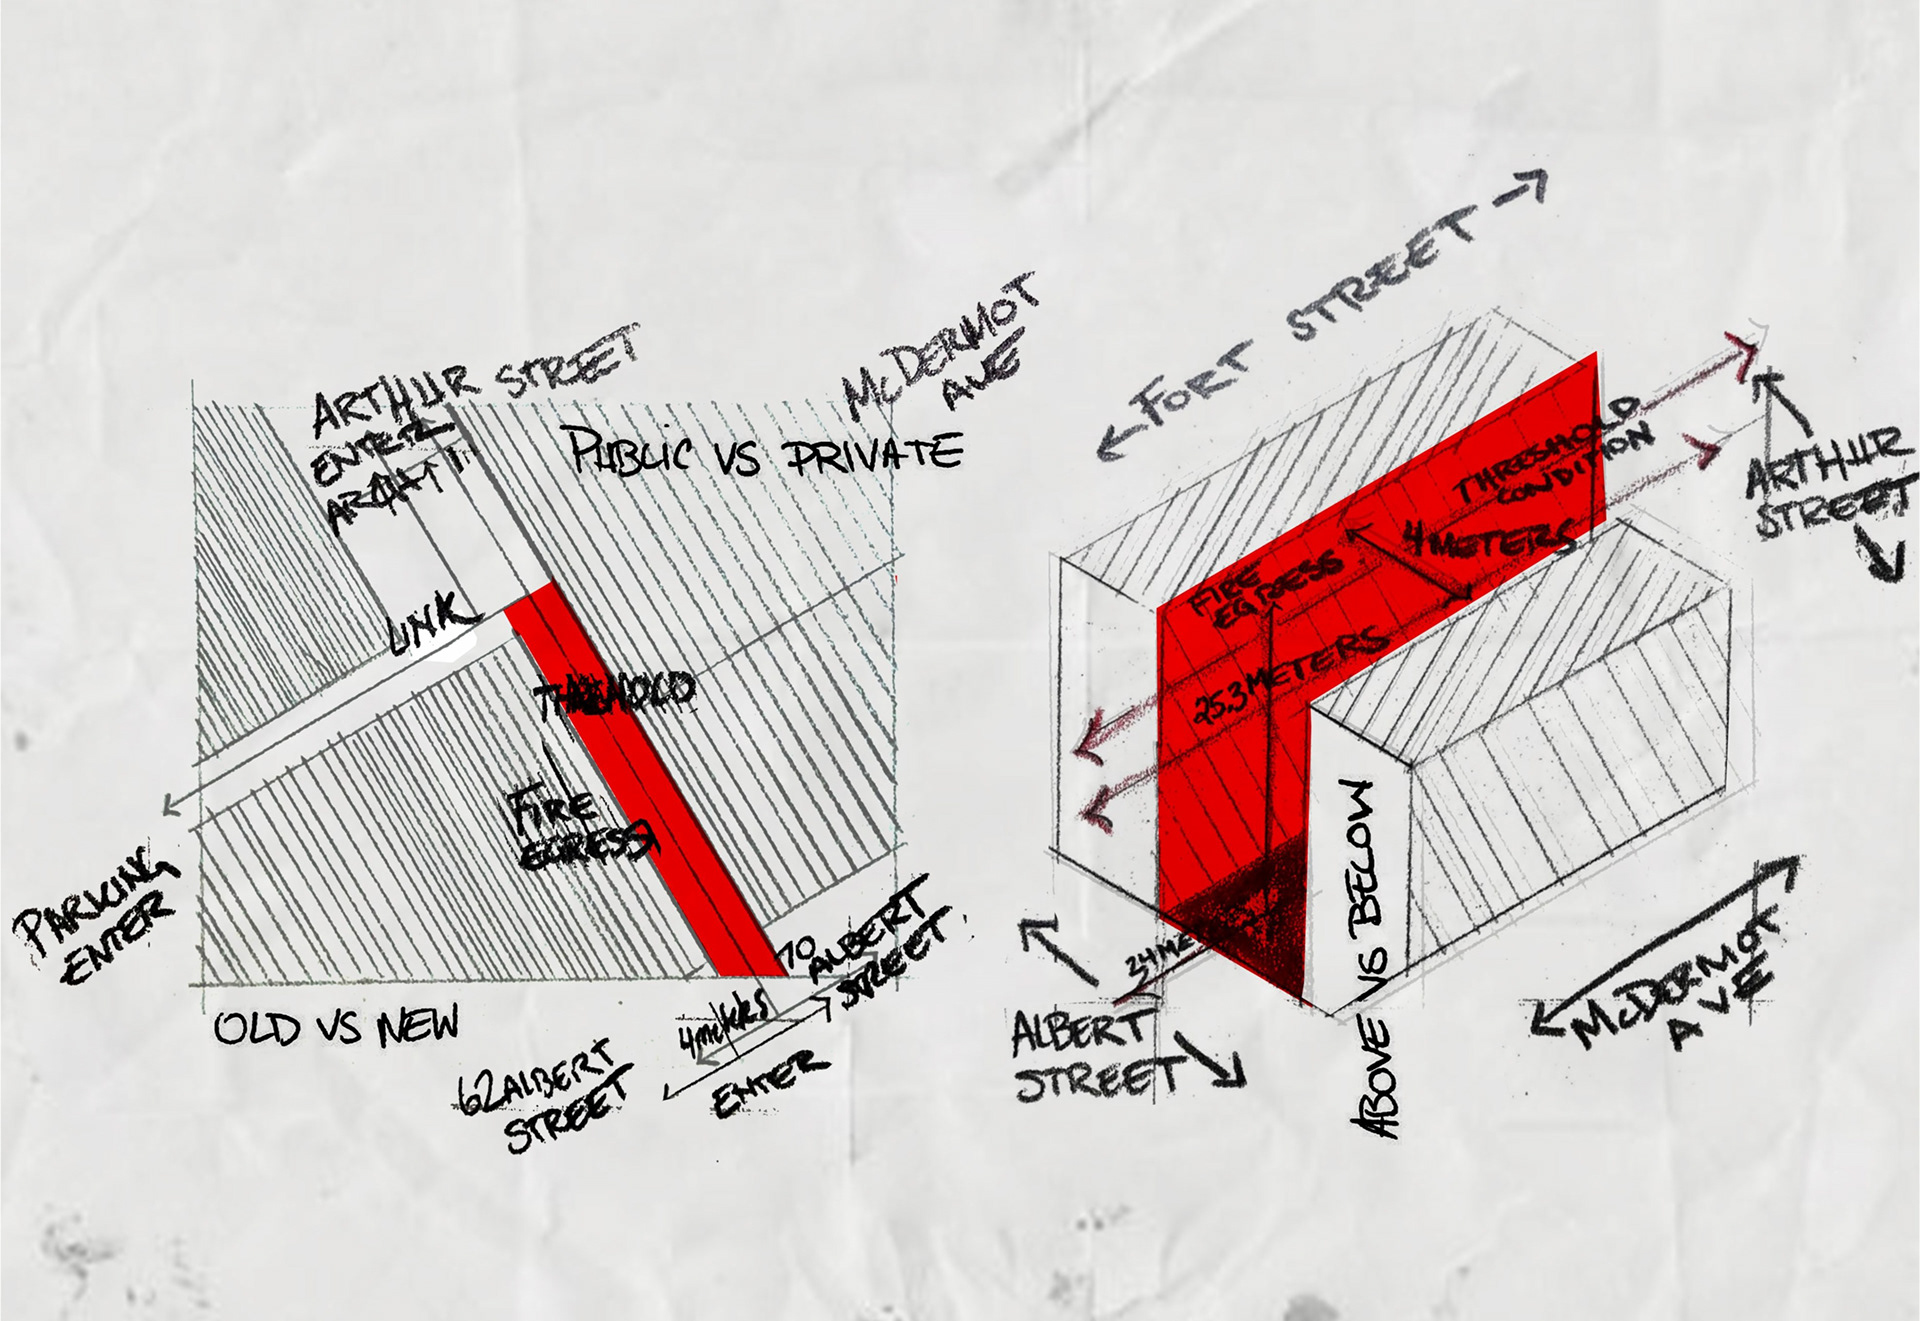 ARTHUR STREET
ENTER
McDERMOT
AVE
PUBLIC VS PRIVATE
LINK
FIRE
EGRESS
PARKING
ENTER
OLD VS NEW
70
ALBERT
STREET
62 ALBERT
STREET
ENTER
← FORT STREET →
THRESHOLD
CONDITION
4 METERS
FIRE
EGRESS
25.3 METERS
ARTHUR
STREET
ABOVE VS BELOW
ALBERT
STREET
McDERMOT
AVE